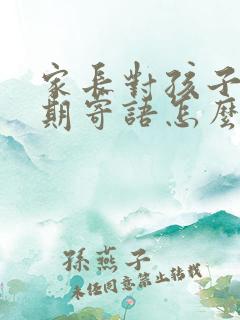 家長對孩子
期寄語怎麼
孫燕子
未經同意禁止轉載